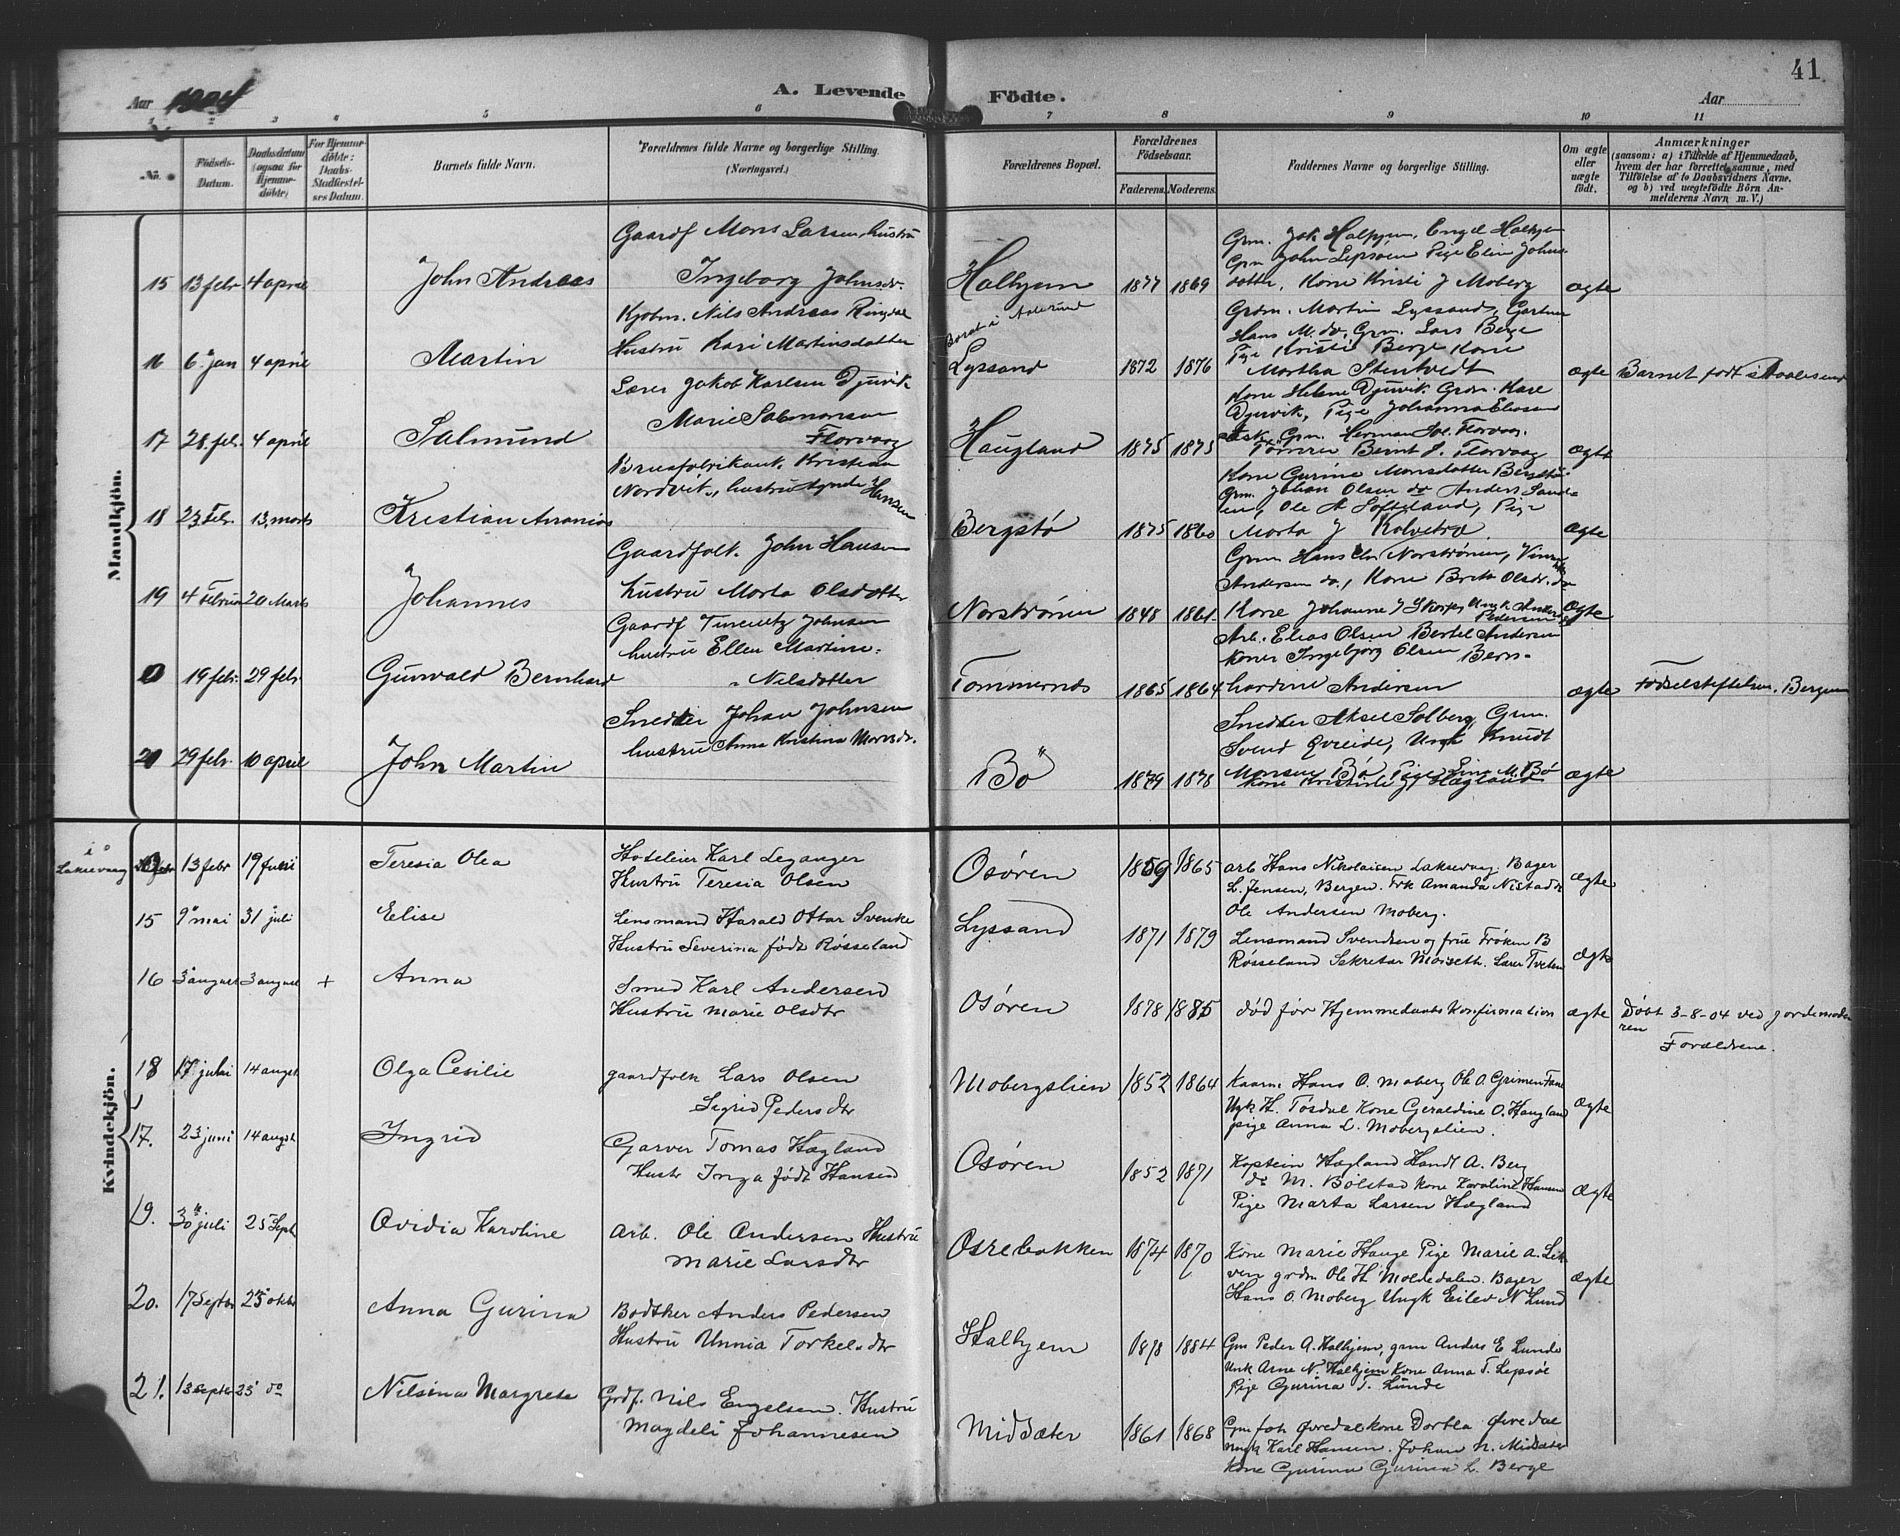 41
Aar 1904
A. Levende Födte.
Aar
1 2 3 4 5 6 7 8 9 10 11
No.
Födsels-Datum.
Daabsdatum (ogsaa for Hjemme-döbte)
For Hjemme-döbte: Daabs-Stadfæstel-ses Datum.
Barnets fulde Navn.
Forældrenes fulde Navne og borgerlige Stilling. (Næringsvei.)
Forældrenes Bopæl.
Forældrenes Födselsaar.
Faderens. Moderens.
Faddernes Navne og borgerlige Stilling.
Om ægte eller uægte födt.
Anmærkninger
(saasom: a) i Tilfælde af Hjemmedaab, hvem der har forrettet samme, med Tilföielse af to Daabsvidners Navne. og b) ved uægtefödte Börn An-melderens Navn m. V.)
Mandkjön.
15 13 febr 4 april John Andreas
Gaardf Mons Larsen, hustru
Ingeborg Johnsdr.
Halhjem 1877 1869
Grm. Jak Halhjem, Engel Halhjem
Grm John Lepsøen Pige Elin Johns
datter, Kone Kristi J Moberg ægte
16 6 jan 4 april Martin
Kjøbm. Nils Andreas Ringdal
Hustru Kari Martinsdatter
Lyssand 1872 1876
Grdm. Martin Lyssand, Gartner
Hans M. do, Grm. Lars Berge
Pige Kristi Berge Kone
Martha Stentvedt ægte
Barnet født i Aalesund
17 28 feb. 4 april Salmund
Lærer Jakob Karlsen Djuvik
Marie Salmonsen
Florvaag
Haugland 1875 1875
Kone Helene Djuvik. Grm. Karl
Djuvik, Pige Johanna Eliasen
Ask. Grm. Herman Joh. Florvaag.
Tømrer Bernt J. Florvaag ægte
18 23 Feb. 13, marts Kristian Ananias
Brusfabrikant. Kristian
Nordvik, hustru Agnete Hansen
Bergstø 1875 1860
Kone Gurine Monsdatter Bergstø
Grm. Johan Olsen do Anders Sand-
en, Ole A Softeland, Pige
Marta J Kolvetra. ægte
19 4 Februar 20 Marts Johannes
Gaardfolk. John Hansen
hustru Marta Olsdatter
Norstrønen 1848 1861.
Grm Hans Norstrønen,
Andersen do., Kone Brita Olsdr. do
Kone Johanne J Ungk Anders
Pedersen ægte
20 19 febr. 29 febr. Gunvald Bernhard
Gaardf Johnsen
hustru Ellen Martine.
Nilsdatter
Tømmernes 1865 1864
Arb. Elias Olsen Bertel Andersen
Koner Ingebjørg Olsen Bern-
hardine Andersen ægte
Fødselstiftelsen. Bergen
21 29 febr. 10 april John Martin
Snedker Johan Johnsen
hustru Anna Kristina Monsdr.
Bø 1879 1878
Snedker Aksel Solberg, Grm.
Svend Øvreide, Ungk Knudt
Monsen Bø Pige Lina M. Bø
Kone Kristine Hægland ægte
Kvindekjön.
i Laksevaag
13 febr 19 Juni Teresia Olea
Hoteleier Karl Leganger
Hustru Teresia Olsen
Osøren 1859 1865
arb Hans Nikolaisen Laksevaag. Bager
L. Jensen, Bergen. Frk Amanda Nistad
Ole Andersen Moberg. ægte
15 9 mai 31 juli Elise
Lensmand Harald Ottar Svenke
Hustru Severina født Røsseland
Lyssand 1871 1879
Lensmand Svendsen og frue Frøken B
Røsseland Sekretær Lærer Tveten ægte
16 3 august 3 august + Anna
Smed Karl Andersen
Hustru Marie Olsdtr
Osøren 1878 1885
død før Hjemmedaabs Konfirmation ægte
Døbt 3-8-04 ved jordemode
ren
Forældrene.
18 17 juli 14 augst Olga Cesilie
gaardfolk Lars Olsen
Sigrid Pedersdtr
Mobergslien 1852 1864
Kaarm Hans O. Moberg Ole O. Grimen Fana
Ungk H. Tøsdal Kone Geraldine O. Haugland
pige Anna L. Mobergslien. ægte
17. 23 juni 14 augst Ingrid
Garver Tomas Hægland
Hustr Inga født Hansen
Osøren 1852 1871
Kaptein Hægland Handl A. Berg
do M. Bølstad Kone Karoline Hansen
Pige Marta Larsen Hægland ægte
19. 30 juli 25 Sept Ovidia Karoline
Arb. Ole Andersen Hustru
Marie Larsdtr
Osrebakken 1874 1870
Kone Marie Hauge Pige Marie A. Lek
ven grdm Ole H Moldedalen. Bager
Hans O. Moberg Ungk Eilev N Lund ægte
20. 17 Septbr 23 oktbr Anna Gurina
Bødtker Anders Pedersen
Hustru Unnia Torkelsdtr
Halhjem 1878 1884
Grm Peder A. Halhjem, grm Anders E Lunde
Unk Arne N. Halhjem Kone Anna T. Lepsøe
Pige Gurina T. Lunde
21. 13 septbr 23 do Nilsina Margreta
Grdf. Nils Engelsen. Hustru
Magdeli Johannesen
Midsæter 1861 1868
Grm Joh Øvredal Kone Dortea Øvredal
Ungk Karl Hansen. Johan N. Midsæter
Kone Gurina Gurina L. Berge